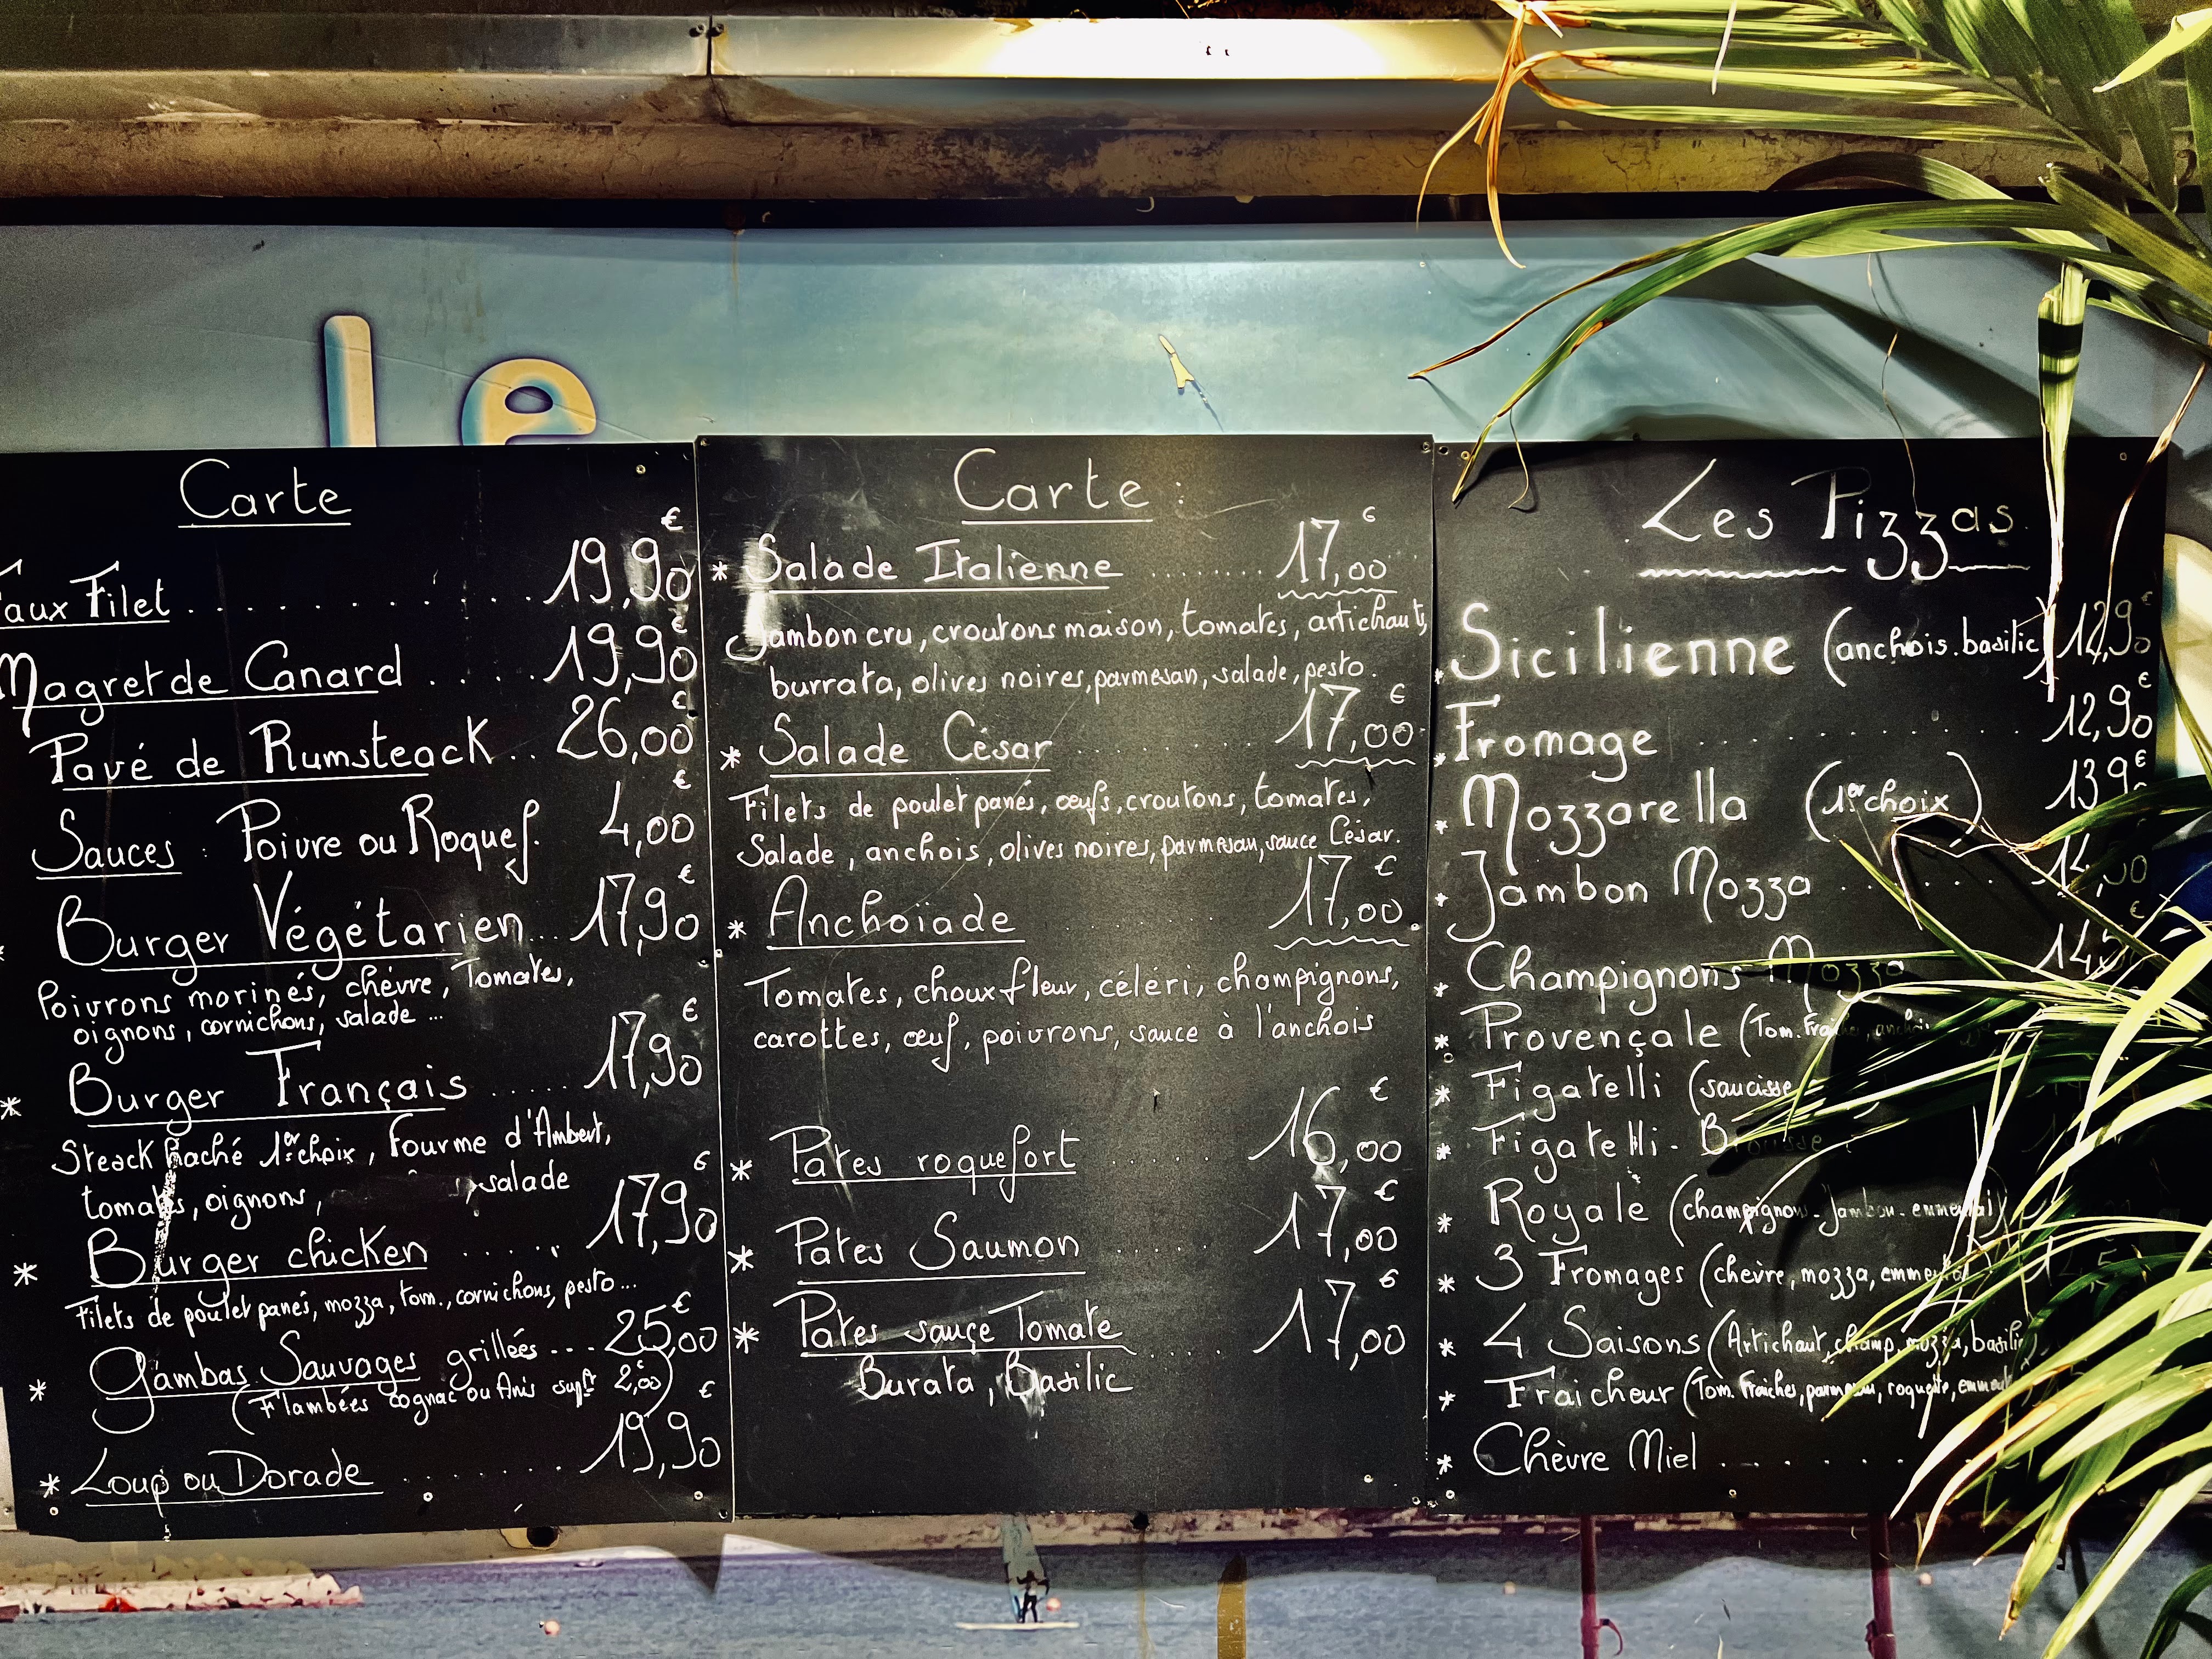 Le
Carte
Faux Filet............. 19,90 €
Magret de Canard .... 19,90 €
Pavé de Rumsteack .. 26,00 €
Sauces : Poivre ou Roquef. 4,00 €
Burger Végétarien... 17,90 €
Poivrons marinés, chèvre, Tomates,
oignons, cornichons, salade ...
* Burger Français ..... 17,90 €
Steack haché 1er choix, Fourme d'Ambert,
tomates, oignons, salade
* Burger chicken ...... 17,90 €
Filets de poulet panés, mozza, tom., cornichons, pesto...
* Gambas Sauvages grillées ... 25,00 €
(Flambées cognac ou Anis suplt 2,00 €)
* Loup ou Dorade ........ 19,90 €
Carte :
* Salade Italienne ........ 17,00 €
Jambon cru, croutons maison, tomates, artichauts,
burrata, olives noires, parmesan, salade, pesto.
* Salade César .......... 17,00 €
Filets de poulet panés, œufs, croutons, tomates,
Salade, anchois, olives noires, parmesan, sauce César.
* Anchoïade ........ 17,00 €
Tomates, choux fleur, céléri, champignons,
carottes, œuf, poivrons, sauce à l'anchois
* Pates roquefort ...... 16,00 €
* Pates Saumon ...... 17,00 €
* Pates sauçe Tomate .... 17,00 €
Burata, Basilic
Les Pizzas
* Sicilienne (anchois.basilic) 12,90 €
* Fromage ............ 12,90 €
* Mozzarella (1er choix) 13,9 €
* Jambon Mozza ........ 14,90
* Champignons Mozza 14 €
* Provençale (Tom. Fraiche, anchois
* Figatelli (saucisse
* Figatelli - Brousse
* Royale (champignon - Jambon - emmental)
* 3 Fromages (chèvre, mozza, emmental
* 4 Saisons (Artichaut, champ, mozza, basilic)
* Fraicheur (Tom. Fraiches, parmesan, roquette, emmental
* Chèvre Miel ........